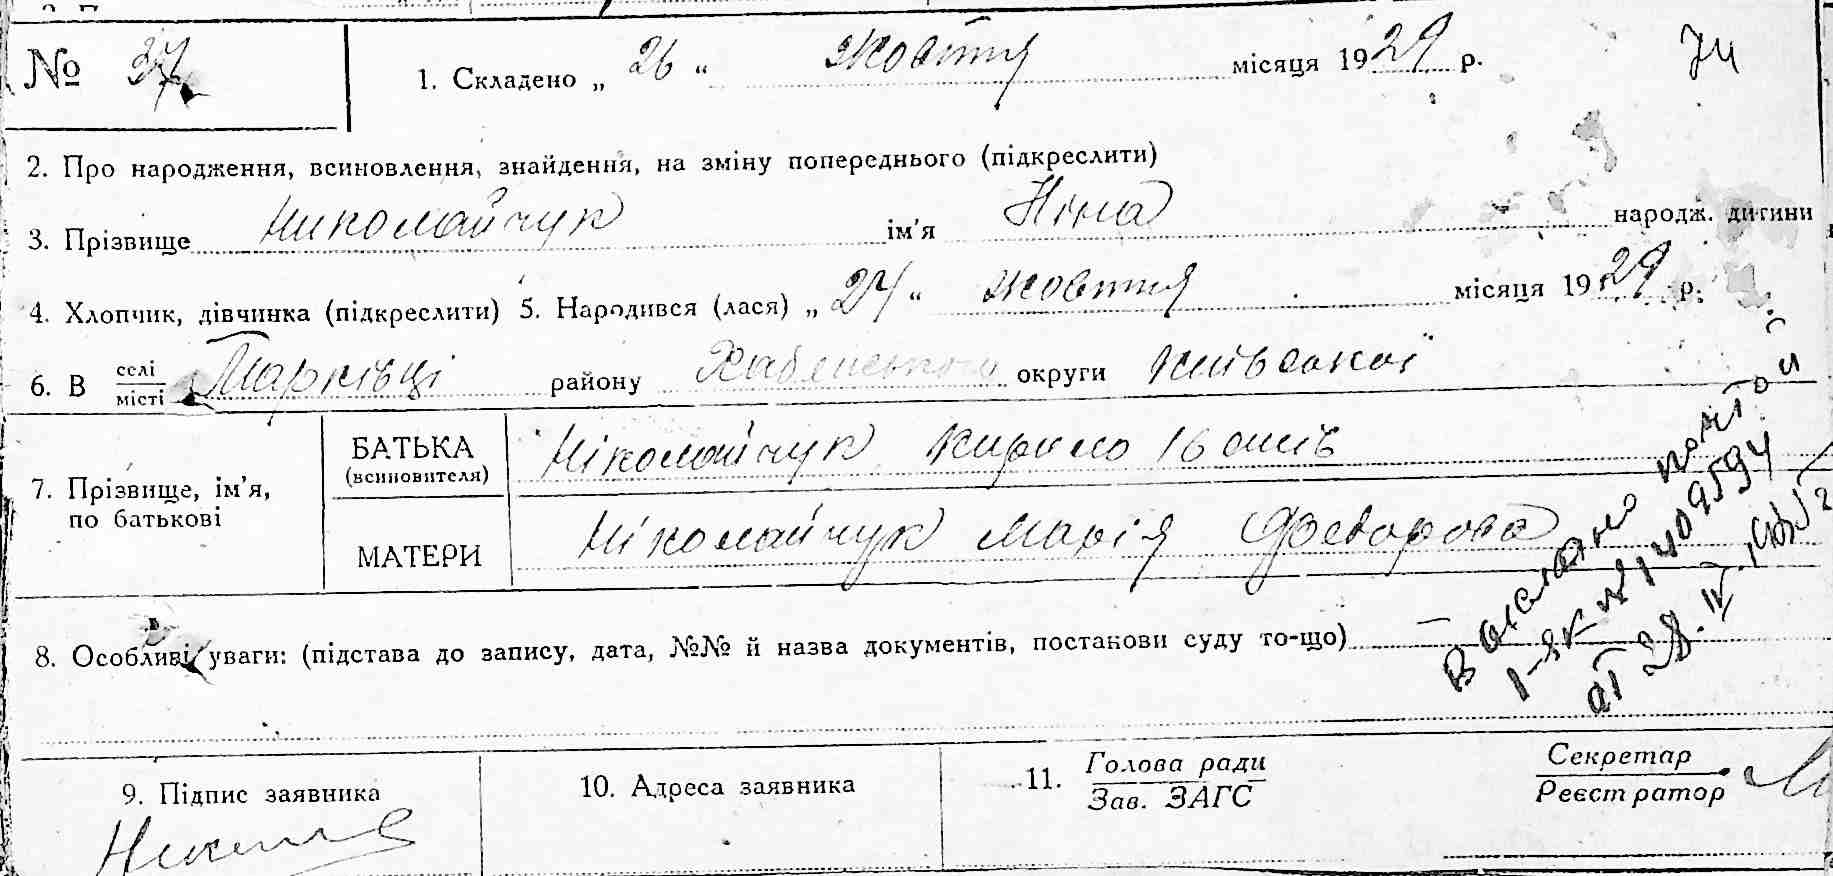 № 37 1. Складено „ 26 “ жовтня місяця 1929 р. 74
2. Про народження, всиновлення, знайдення, на зміну попереднього (підкреслити)
3. Прізвище Николайчук ім'я Ніна народж. дитини
4. Хлопчик, дівчинка (підкреслити) 5. Народився (лася) „ 24 “ жовтня місяця 1929 р.
6. В селі/місті Марківці району Хабенського округи Київської
7. Прізвище, ім'я, по батькові
БАТЬКА (всиновителя) Ніколайчук Кирило Ів
МАТЕРИ Ніколайчук Марія Федорова
8. Особливі уваги: (підстава до запису, дата, №№ й назва документів, постанови суду то-що)
1-ЯК № 1409594
от 28.IV.
9. Підпис заявника
10. Адреса заявника
11. Голова ради
Зав. ЗАГС
Секретар
Реєстратор